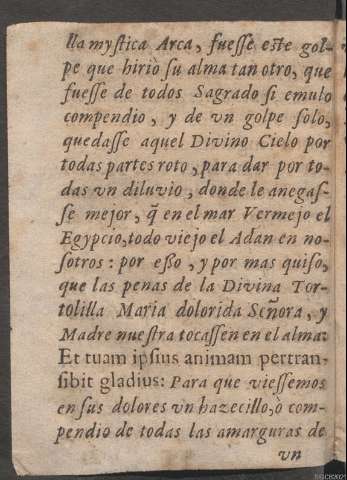 lla mystica Arca, fuesse este gol-
pe que hiriò su alma tan otro, que
fuesse de todos Sagrado si emulo
compendio, y de vn golpe solo,
quedasse aquel Divino Cielo por
todas partes roto, para dar por to-
das vn diluvio, donde le anegas-
se mejor, q̃ en el mar Vermejo el
Egypcio, todo viejo el Adan en no-
sotros: por eßo, y por mas quiso,
que las penas de la Divina Tor-
tolilla Maria dolorida Señora, y
Madre nuestra tocassen en el alma:
Et tuam ipsius animam pertran-
sibit gladius: Para que viessemos
en sus dolores vn hazecillo, ò com-
pendio de todas las amarguras de
vn